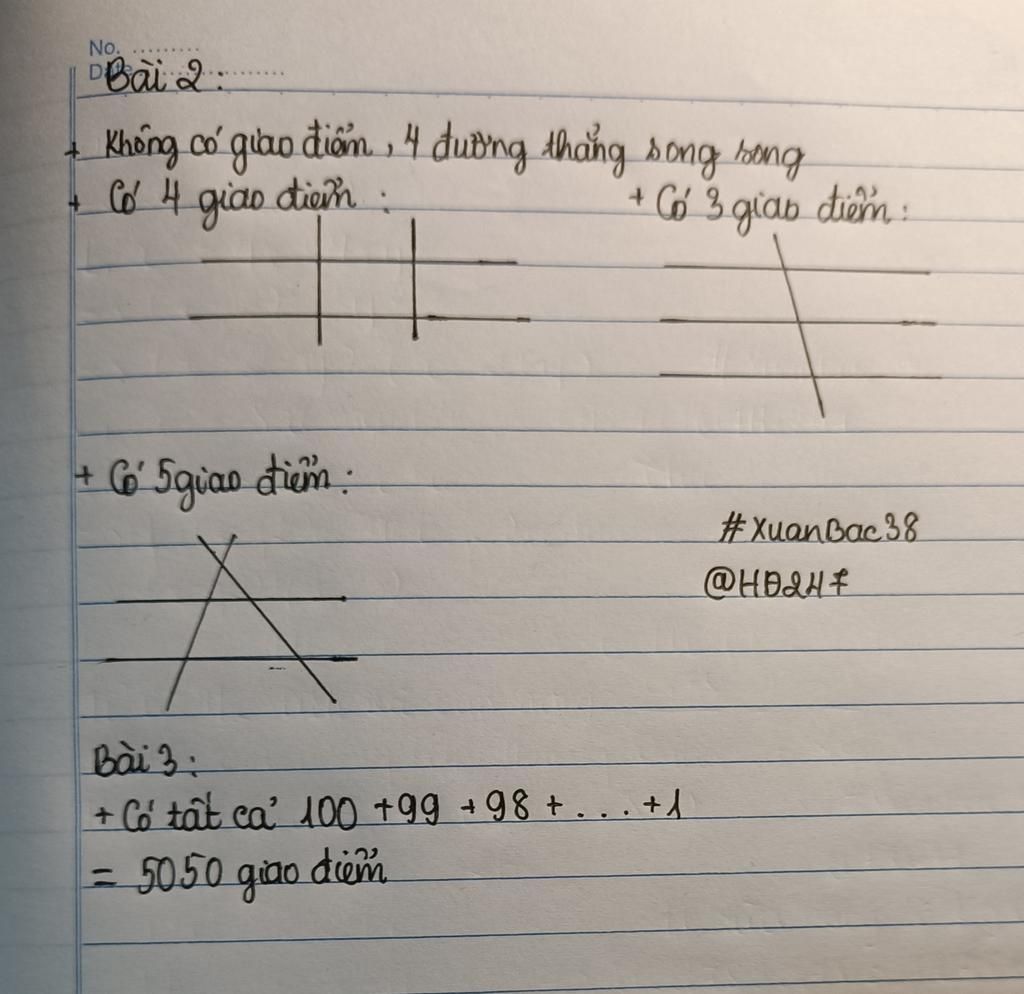 No. .........
Date ..............
Bài 2:
+ Không có giao điểm, 4 đường thẳng song song
+ Có 4 giao điểm:
+ Có 3 giao điểm:
+ Có 5 giao điểm:
#XuanBac38
@HĐ247
Bài 3:
+ Có tất cả 100 +99 +98 + ... +1
= 5050 giao điểm